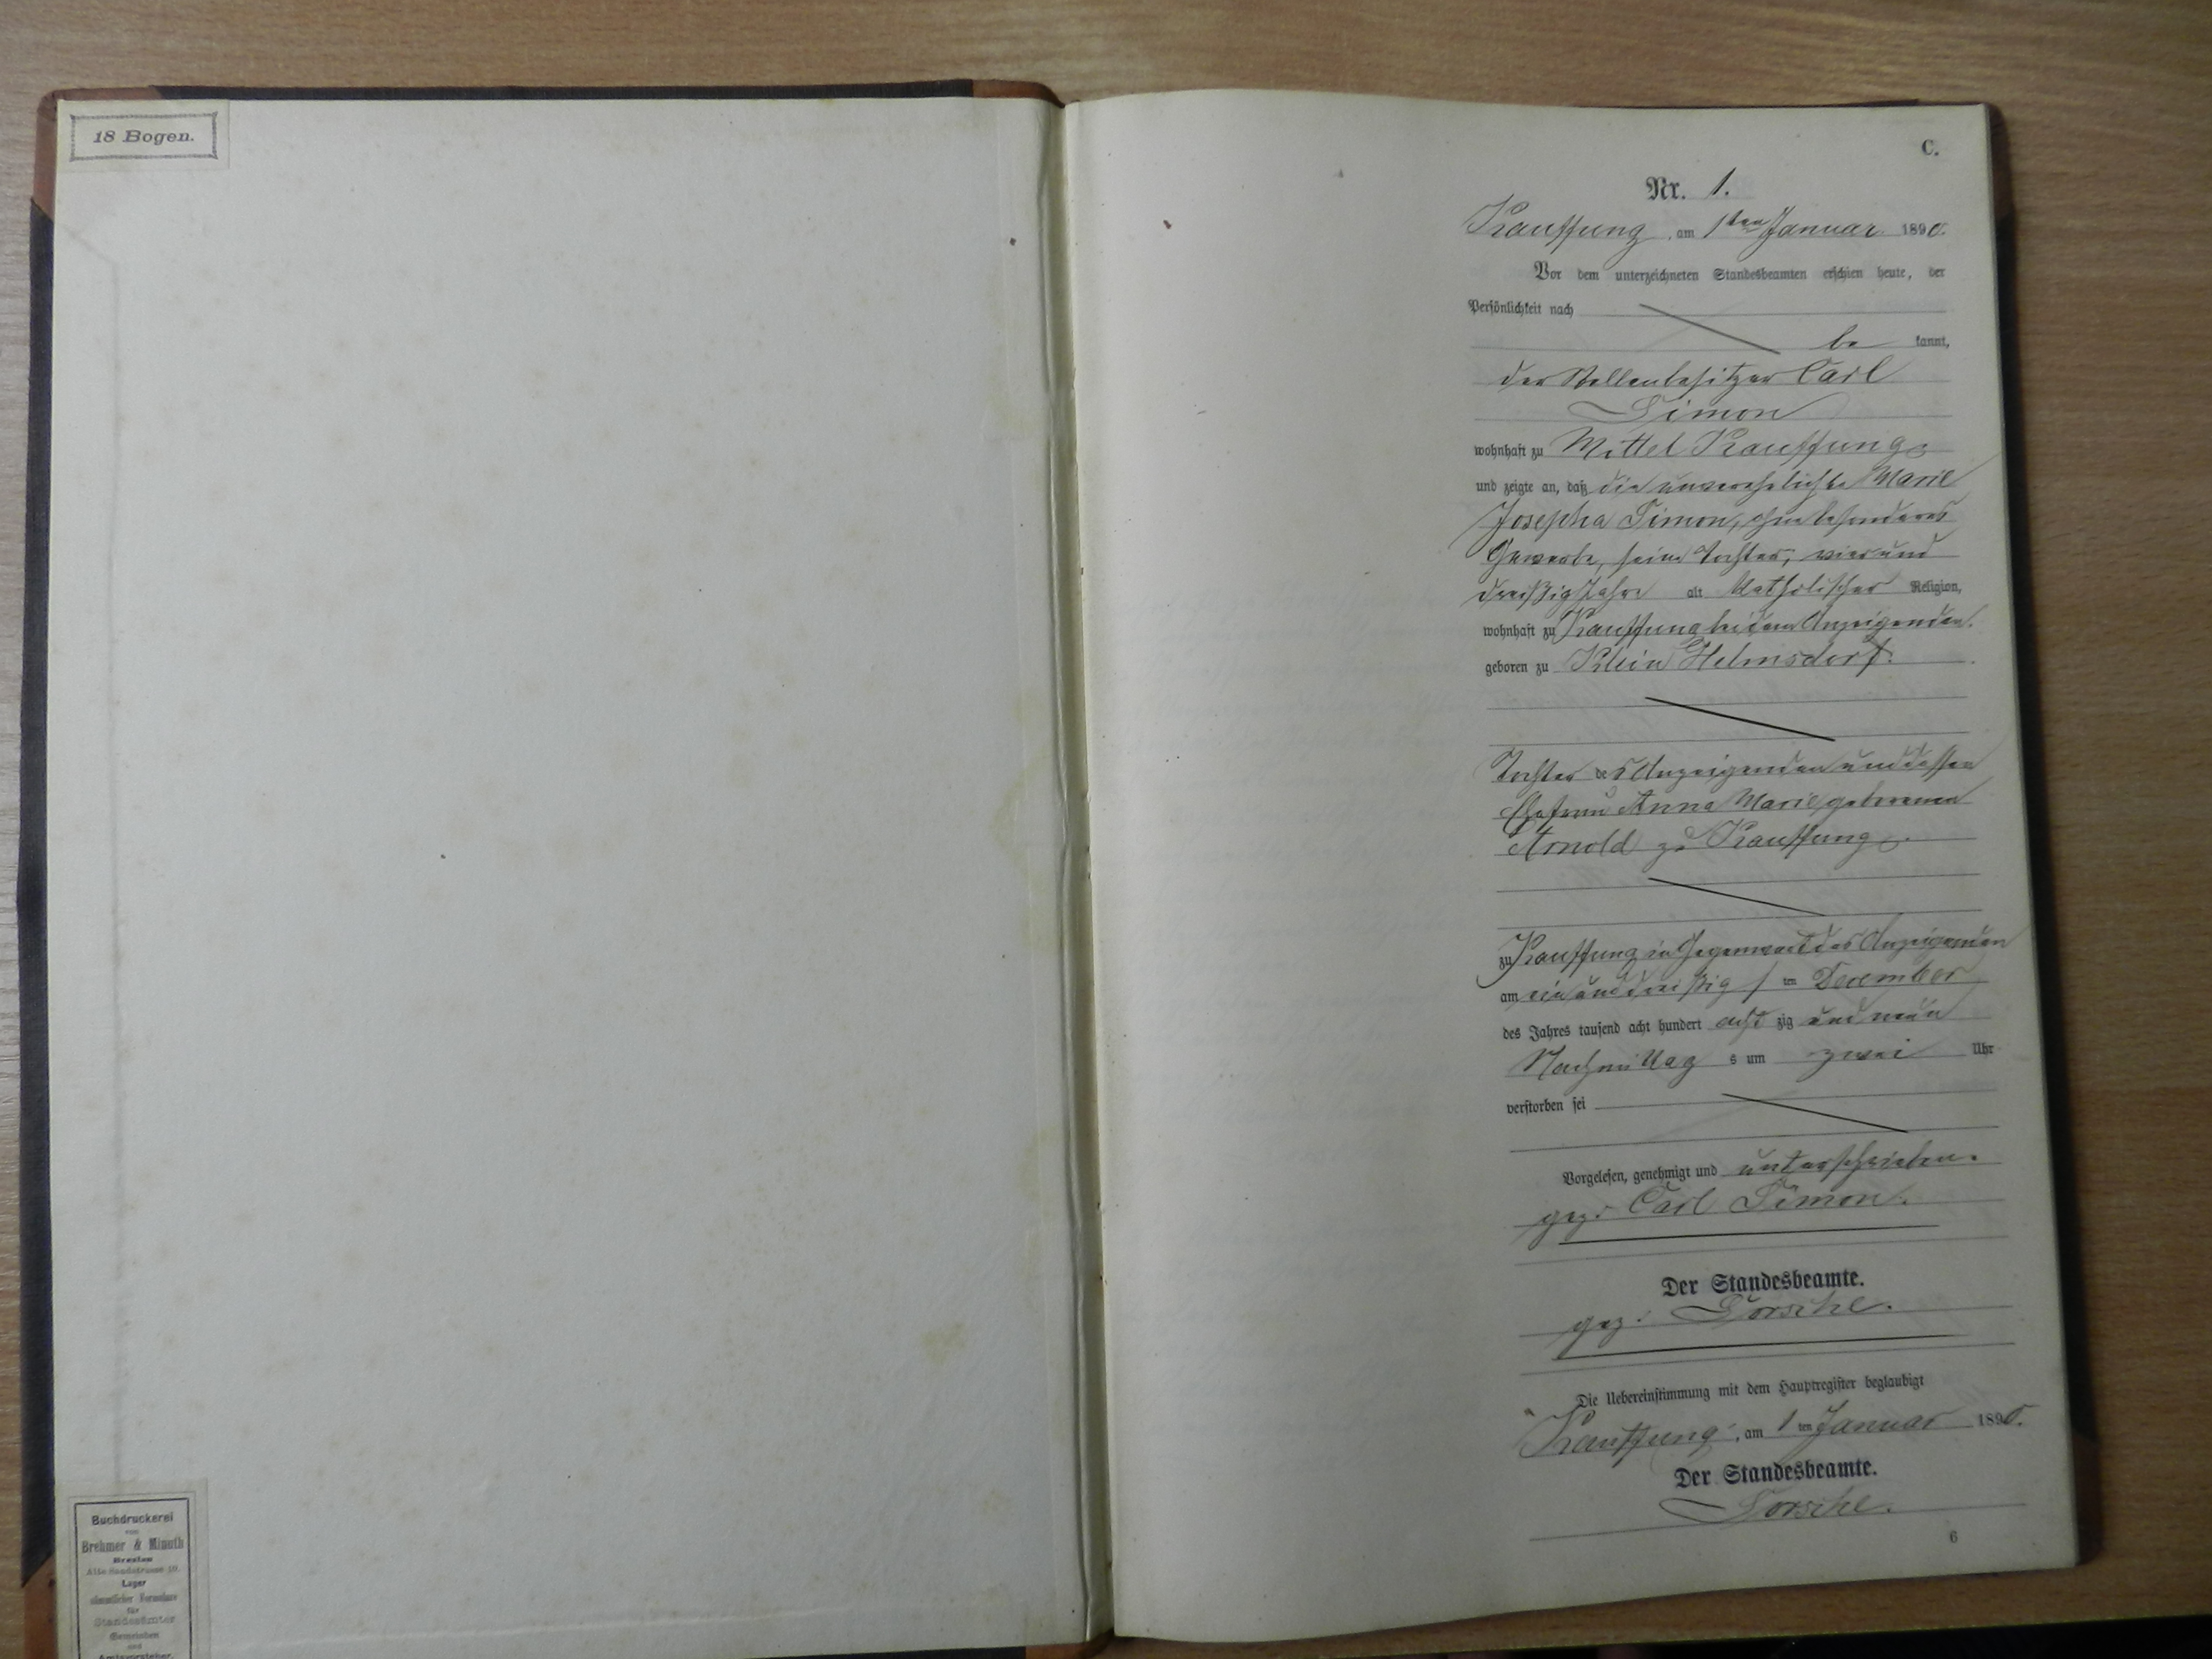 18 Bogen.
Buchdruckerei
von
Brehmer & Minuth
Breslau
Alte Sandstrasse 10.
Lager
sämmtlicher Formulare
für
Standesämter
Gemeinden
und
Amtsvorsteher.
C.
Nr. 1.
Kauffung, am 1ten Januar 1890.
Vor dem unterzeichneten Standesbeamten erschien heute, der
Persönlichkeit nach
be kannt,
der Stellenbesitzer Carl
Simon
wohnhaft zu Mittel Kauffung
und zeigte an, daß die unverehelichte Marie
Josepha Simon, ohne besonderes
Gewerbe, seine Tochter, vier und
dreißig Jahre alt katholischer Religion,
wohnhaft zu Kauffung bei dem Anzeigenden.
geboren zu Klein Helmsdorf.
Tochter des Anzeigenden und dessen
Ehefrau Anna Marie geborenen
Arnold zu Kauffung.
zu Kauffung in Gegenwart des Anzeigenden
am ein und dreißig ten December
des Jahres tausend acht hundert acht zig und neun
Nachmittag s um zwei Uhr
verstorben sei
Vorgelesen, genehmigt und unterschrieben.
gez: Carl Simon.
Der Standesbeamte.
gez:
Die Uebereinstimmung mit dem Hauptregister beglaubigt
Kauffung, am 1 ten Januar 1890.
Der Standesbeamte.
6